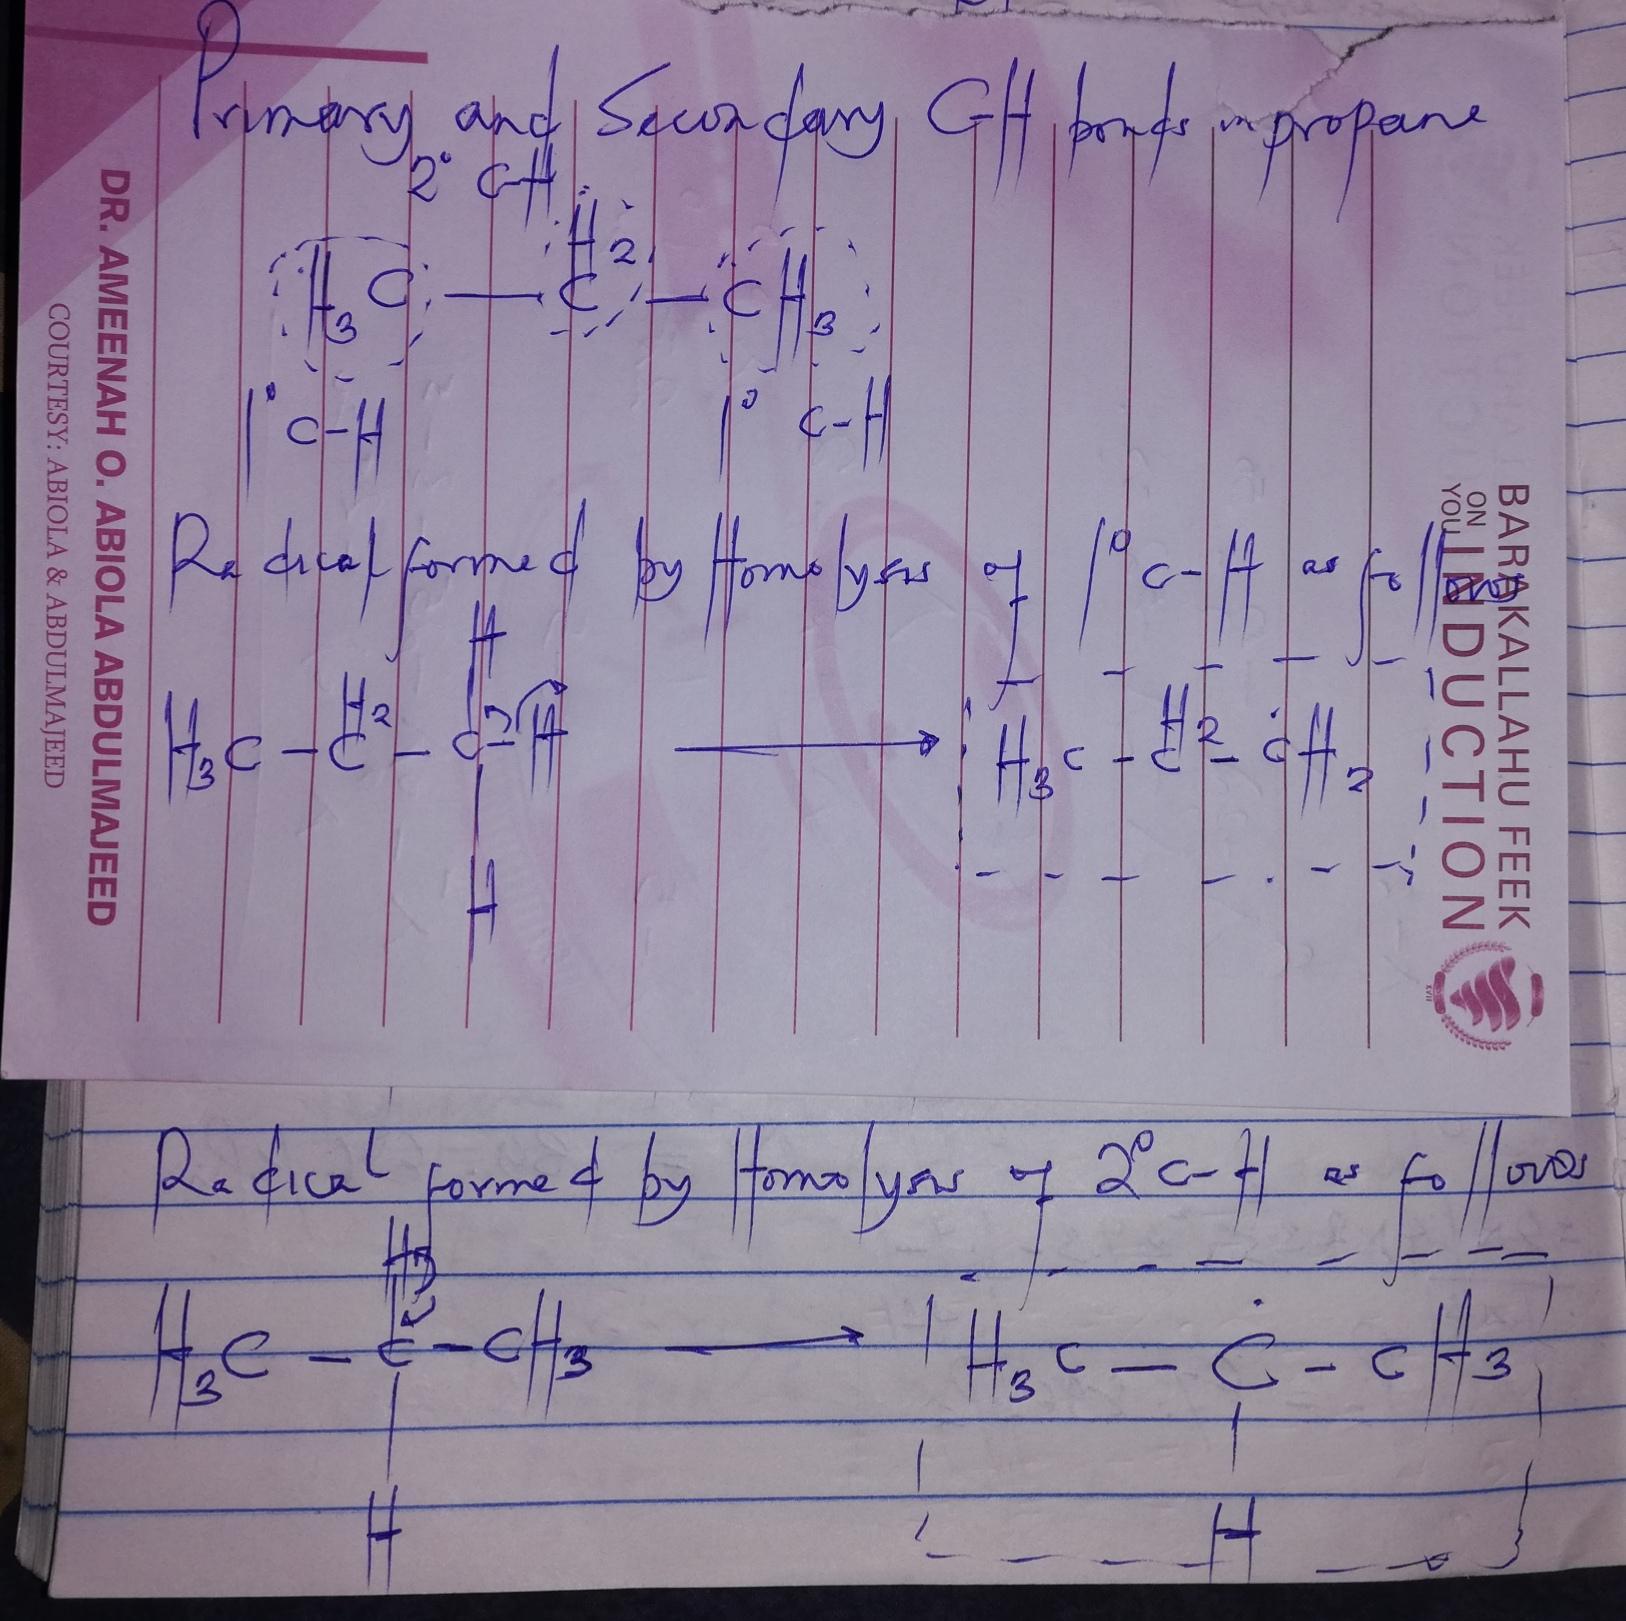 Primary and Secondary C-H bonds in propane
2° C-H
H2
H3C — C — CH3
1° C-H 1° C-H
Radical formed by Homolysis of 1° C-H as follows
H
H3C - CH2 - C - H → H3C - CH2 - ĊH2
H
DR. AMEENAH O. ABIOLA ABDULMAJEED
COURTESY: ABIOLA & ABDULMAJEED
BARAKALLAHU FEEK
ON YOU INDUCTION
Radical formed by Homolysis of 2° C-H as follows
H
H3C - C - CH3 → H3C — Ċ - CH3
H H